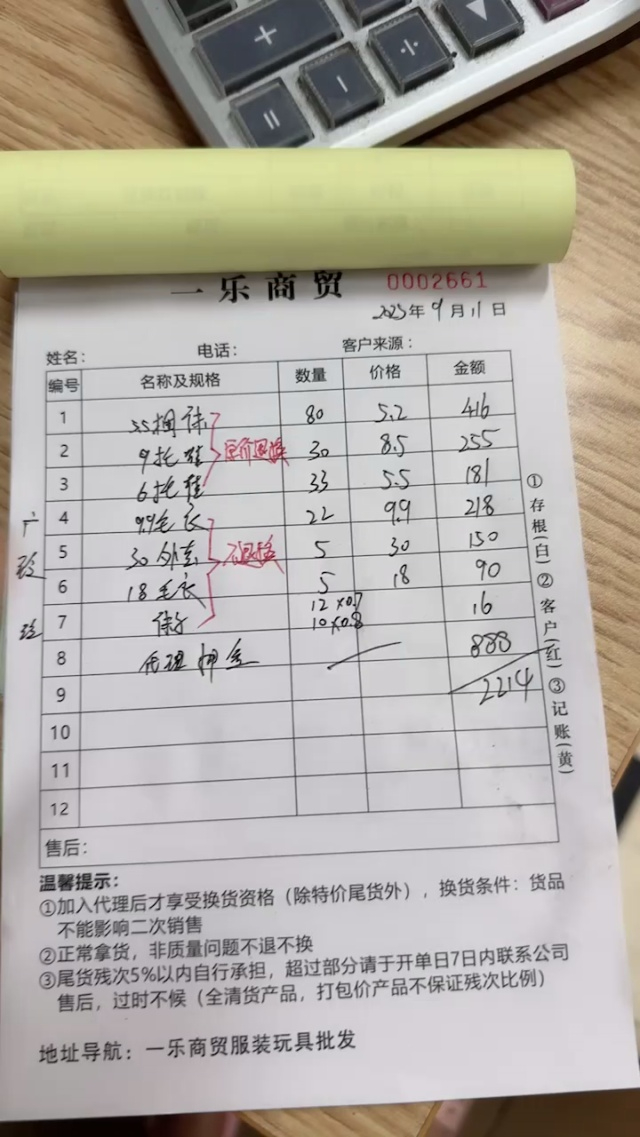 一乐商贸 0002661
2025年9月11日
姓名： 电话： 客户来源：
编号 名称及规格 数量 价格 金额
1 80 5.2 416
2 9托鞋 30 8.5 255
3 6托鞋 33 5.5 181
4 9.9毛衣 22 9.9 218
5 30外套 5 30 150
6 18毛衣 5 18 90
7 袜子 12×0.7 16
10×0.8
8 代理押金 888
9 2214
10
11
12
不退换
①存根(白)②客户(红)③记账(黄)
售后：
温馨提示：
①加入代理后才享受换货资格（除特价尾货外），换货条件：货品
不能影响二次销售
②正常拿货，非质量问题不退不换
③尾货残次5%以内自行承担，超过部分请于开单日7日内联系公司
售后，过时不候（全清货产品，打包价产品不保证残次比例）
地址导航：一乐商贸服装玩具批发